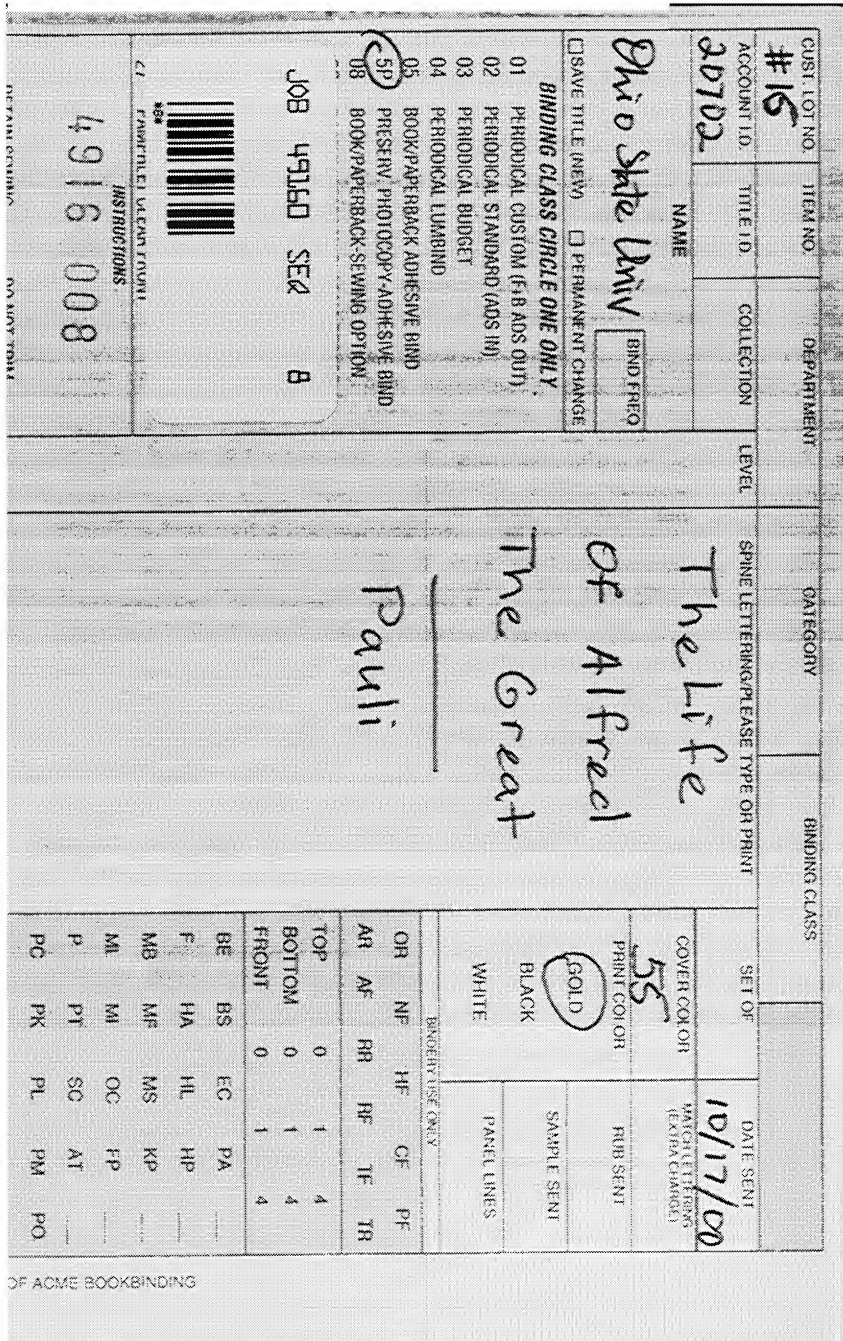 CUST. LOT NO.
#16
ITEM NO.
DEPARTMENT
CATEGORY
BINDING CLASS
ACCOUNT I.D.
20702
TITLE I.D.
COLLECTION
LEVEL
SPINE LETTERING/PLEASE TYPE OR PRINT
SET OF
DATE SENT
10/17/00
NAME
Ohio State Univ
BIND FREQ
☐ SAVE TITLE (NEW) ☐ PERMANENT CHANGE
BINDING CLASS CIRCLE ONE ONLY
01 PERIODICAL CUSTOM (F+B ADS OUT)
02 PERIODICAL STANDARD (ADS IN)
03 PERIODICAL BUDGET
04 PERIODICAL LUMBIND
05 BOOK/PAPERBACK ADHESIVE BIND
5P PRESERV PHOTOCOPY-ADHESIVE BIND
08 BOOK/PAPERBACK-SEWING OPTION
JOB 49160 SEQ 8
INSTRUCTIONS
4916 008
The Life
Of Alfred
The Great
Pauli
COVER COLOR
55
PRINT COLOR
GOLD
BLACK
WHITE
MATCH LETTERING
(EXTRA CHARGE)
RUB SENT
SAMPLE SENT
PANEL LINES
BINDERY USE ONLY
OR NF HF CF PF
AR AF RR RF TF TR
TOP 0 1 4
BOTTOM 0 1 4
FRONT 0 1 4
BE BS EC PA
F HA HL HP
MB MF MS KP
ML MI OC FP
P PT SC AT
PC PK PL PM PO
OF ACME BOOKBINDING